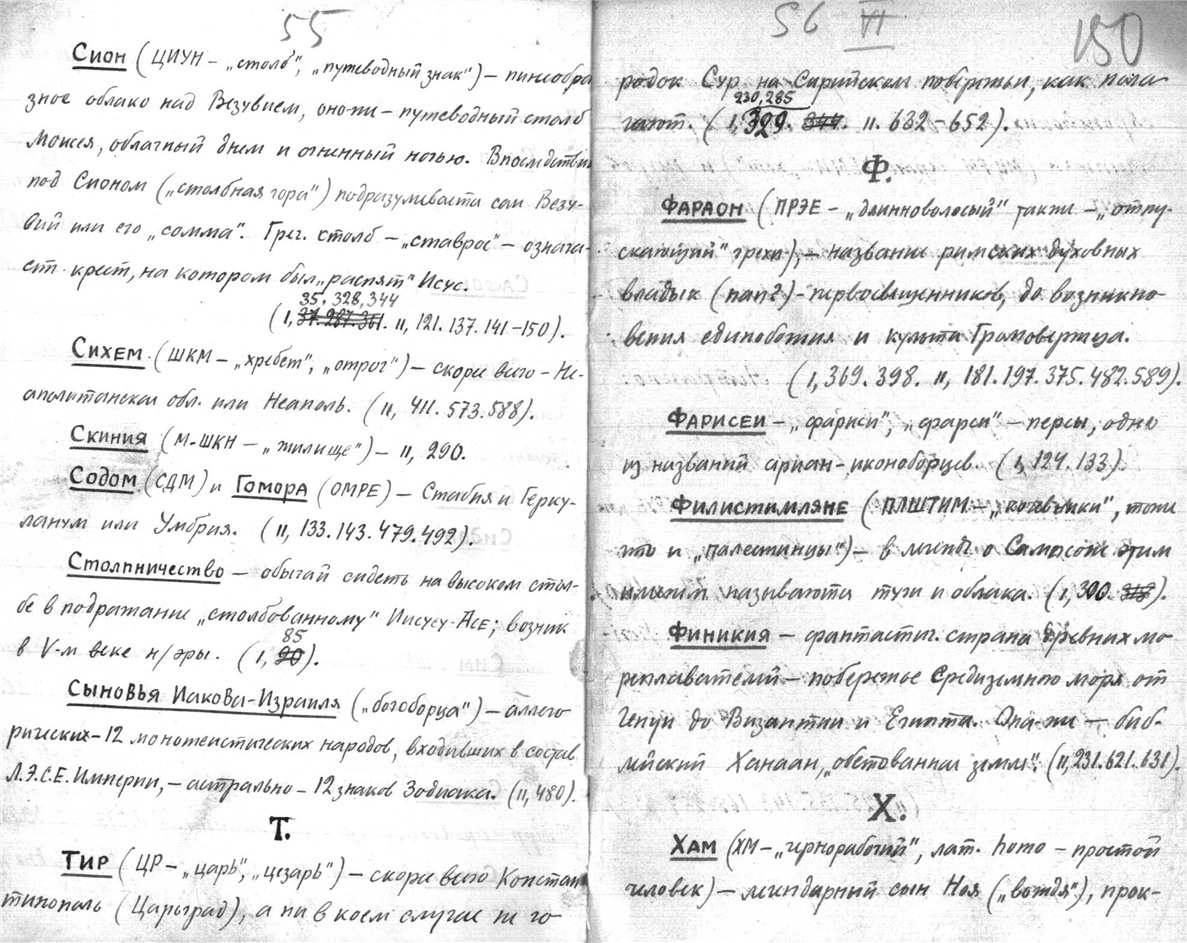 55
Сион (ЦИУН – „столб“, „путеводный знак“) – пинеобра
зное облако над Везувием, оно-же – путеводный столб
Моисея, облачный днем и огненный ночью. Впоследствии
под Сионом („столбная гора“) подразумевается сам Везу-
вий или его „сомма“. Греч. столб – „ставрос“ – означа-
ет крест, на котором был „распят“ Исус.
35. 328, 344
(I, 37. 287. 361. II, 121. 137. 141–150).
Сихем (ШКМ – „хребет“, „отрог“) – скорее всего – Не-
аполитанская обл. или Неаполь. (II, 411. 573. 588).
Скиния (М-ШКН – „жилище“) – II, 290.
Содом (СДМ) и Гомора (ОМРЕ) – Стабия и Герку-
ланум или Умбрия. (II, 133. 143. 479. 492).
Столпничество – обычай сидеть на высоком стол-
бе в подражание „столбованному“ Иисусу-Асе; возник
в V-м веке н/эры. (I, 90).
85
Сыновья Иакова-Израиля („богоборца“) – аллего
рических – 12 монотеистических народов, входивших в состав
Л.Э.С.Е. Империи, – астрально – 12 знаков Зодиака. (II, 480).
Т.
Тир (ЦР – „царь“, „цезарь“) – скорее всего Констан
тинополь (Царьград), а ни в коем случае не го
56 VI 150
родок Сур на Сирийском побережьи, как пола
гают. (I, 329. 344. II. 632–652).
230, 285
Ф.
Фараон (ПРЭЕ – „длинноволосый“ также – „отпу-
скающий“ грехи), – название римских духовных
владык (пап?) – первосвященников, до возникно-
вения единобожия и культа Громовержца.
(I, 369. 398. II, 181. 197. 375. 482. 589).
Фарисеи – „фариси“, „фарси“ – персы, одно
из названий ариан-иконоборцев. (I, 124. 133).
Филистимляне (ПЛШТИМ – „кочевники“, тоже
что и „палестинцы“) – в легенде о Самсоне этим
именем называются тучи и облака. (I, 300. 313).
Финикия – фантастич. страна древних мо-
реплавателей – побережье Средиземного моря от
Генуи до Византии и Египта. Она-же – биб-
лейский Ханаан, „обетованная земля“. (II, 231. 621. 631).
Х.
Хам (ХМ – „чернорабочий“, лат. homo – простой
человек) – легендарный сын Ноя („вождя“), прок-